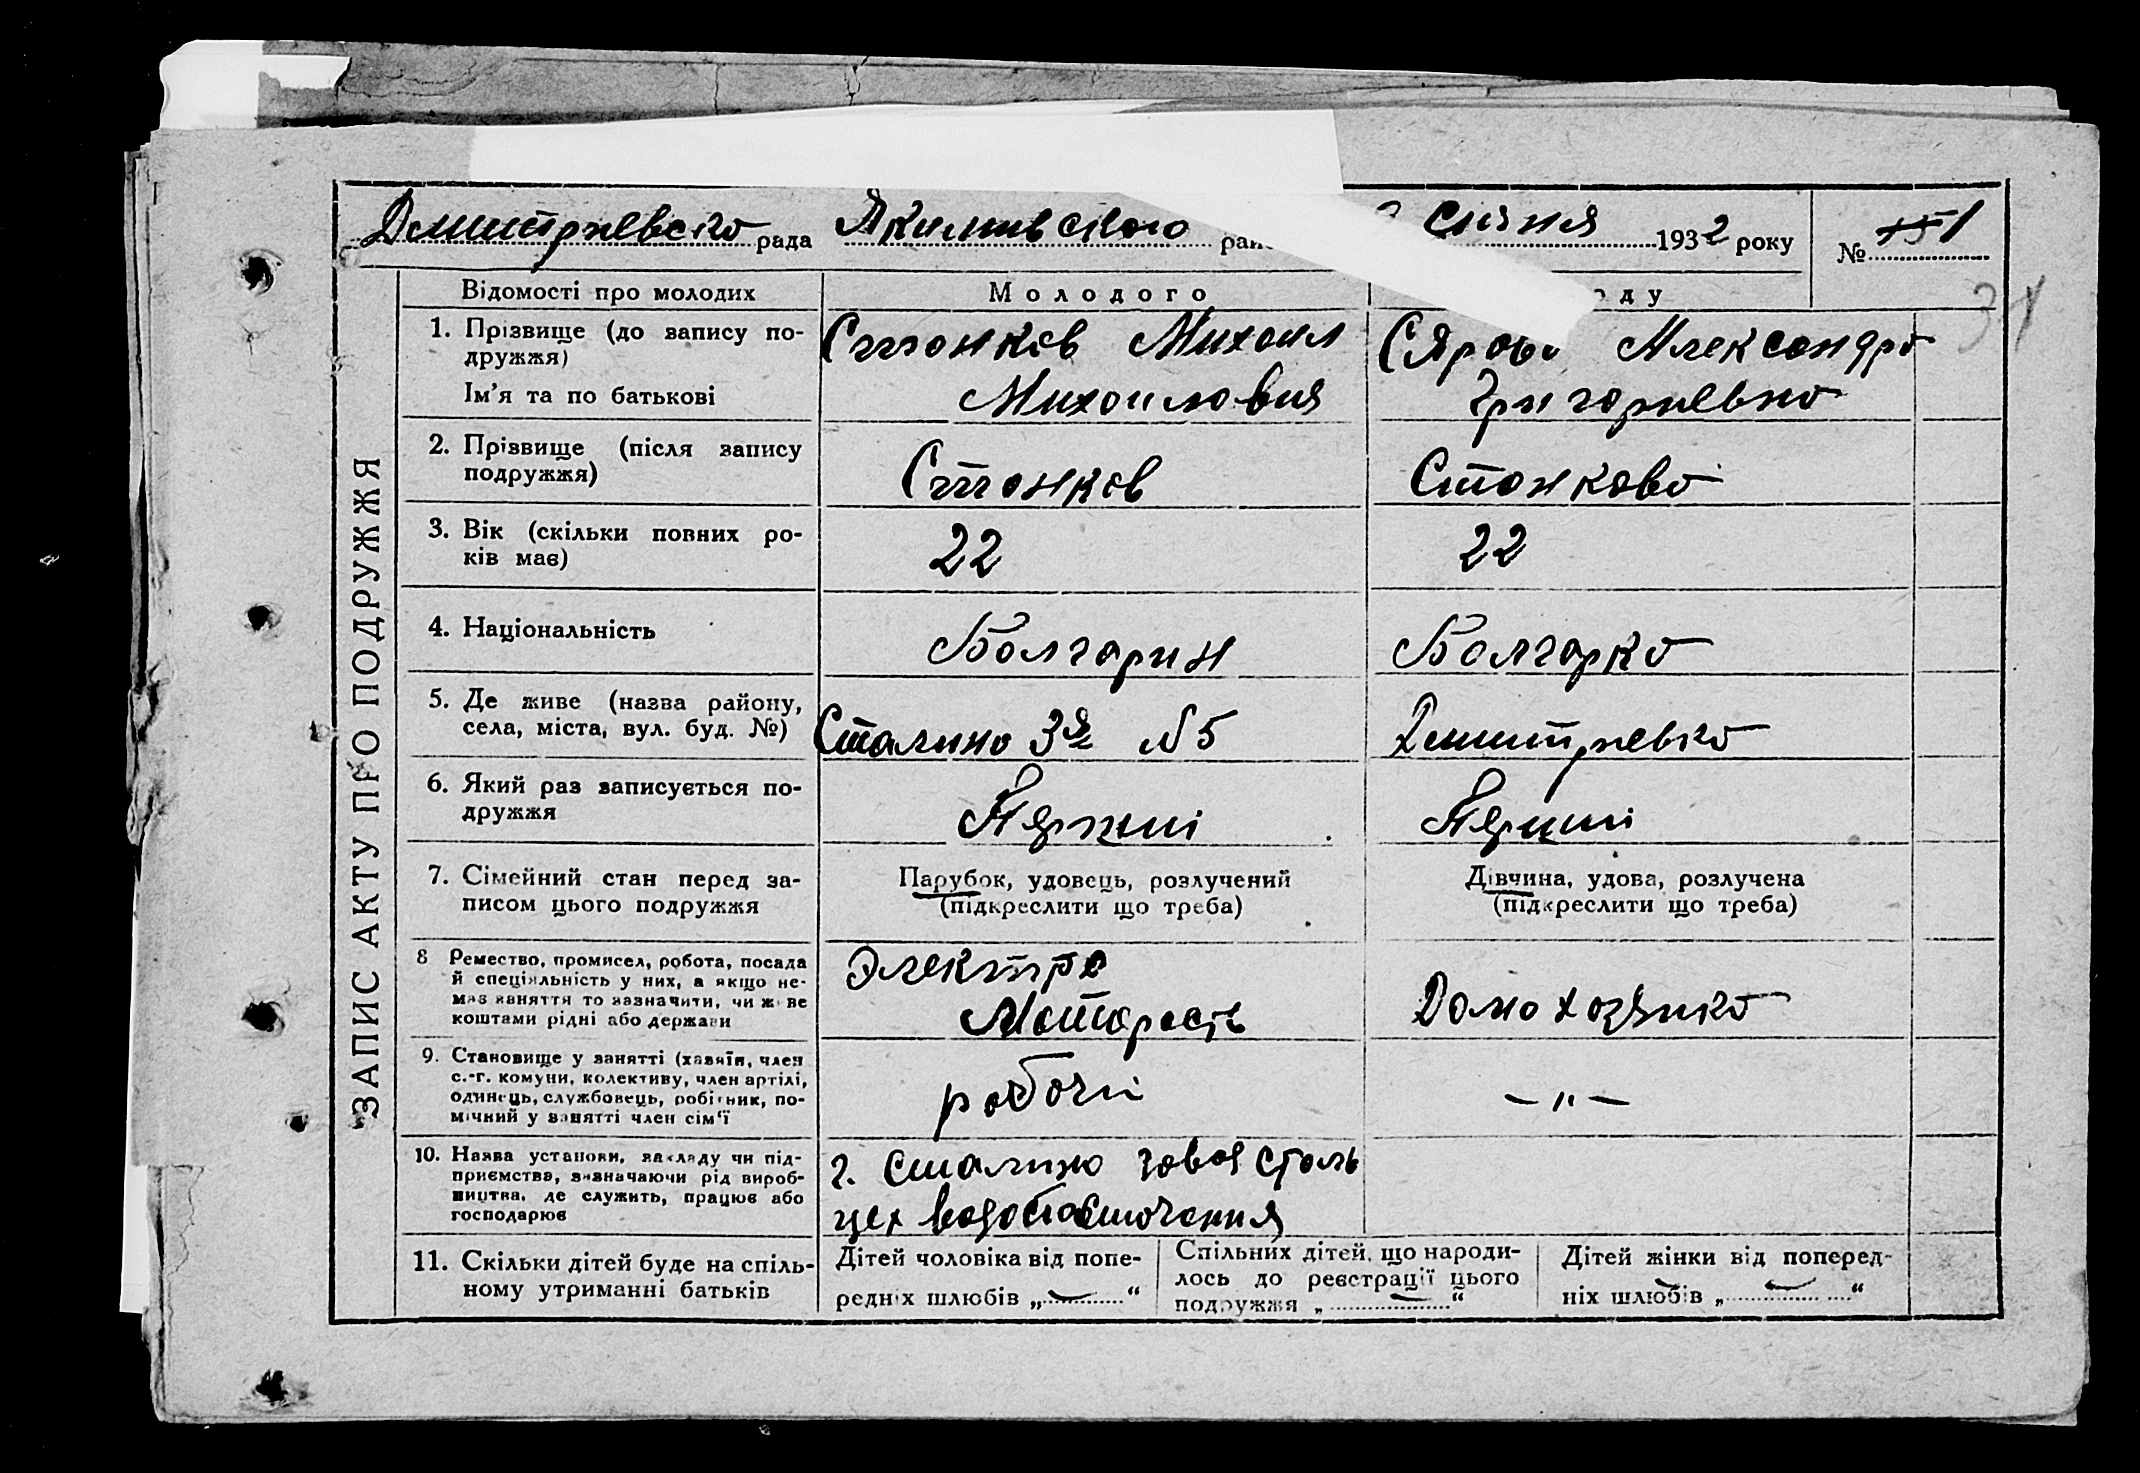 Дмитриевска рада Якимивского рай Січня 1932 року № 1
Відомості про молодих
Молодого
оду
1. Прізвище (до запису по-
дружжя)
Ім'я та по батькові
Станков Михаил
Михаиловия
Александра
Григориевна
2. Прізвище (після запису
подружжя)
Станков
Станкова
3. Вік (скільки повних ро-
ків має)
22
22
4. Національність
Болгарин
Болгарка
5. Де живе (назва району,
села, міста, вул. буд. №)
Сталино 3я N 5
Дмитриевка
6. Який раз записується по-
дружжя
Перший
Перший
7. Сімейний стан перед за-
писом цього подружжя
Парубок, удовець, розлучений
(підкреслити що треба)
Дівчина, удова, розлучена
(підкреслити що треба)
8 Ремество, промисел, робота, посада
й спеціяльність у них, а якщо не-
має заняття то зазначити, чи живе
коштами рідні або держави
Электро
Домохозяйка
9. Становище у занятті (хазяїн, член
с.-г. комуни, колективу, член артілі,
одинець, службовець, робітник, по-
мічний у занятті член сім'ї
рабочи
– " –
10. Назва установи, закладу чи під-
приємства, зазначаючи рід вироб-
ництва, де служить, працює або
господарює
г. Сталино завод сталь
цех
11. Скільки дітей буде на спіль-
ному утриманні батьків
Дітей чоловіка від попе-
редніх шлюбів „ — “
Спільних дітей, що народи-
лось до реєстрації цього
подружжя „ — “
Дітей жінки від поперед-
ніх шлюбів „ — “
ЗАПИС АКТУ ПРО ПОДРУЖЖЯ